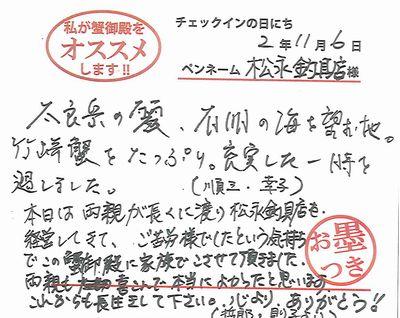 私が蟹御殿を
オススメ
します!!
チェックインの日にち
2年11月6日
ペンネーム 松永釣具店様
太良岳の霞、有明の海を望む地。
竹崎蟹をたっぷり。充実した一時を
過しました。 (順三・幸子)
本日は両親が長くに渡り松永釣具店を
経営してきて、ご苦労様でしたという気持ち
でこの蟹御殿に家族でこさせて頂きました。
両親も 喜こんで本当によかったと思います。
これからも長生きして下さい。心より、ありがとう!!
お墨
つき